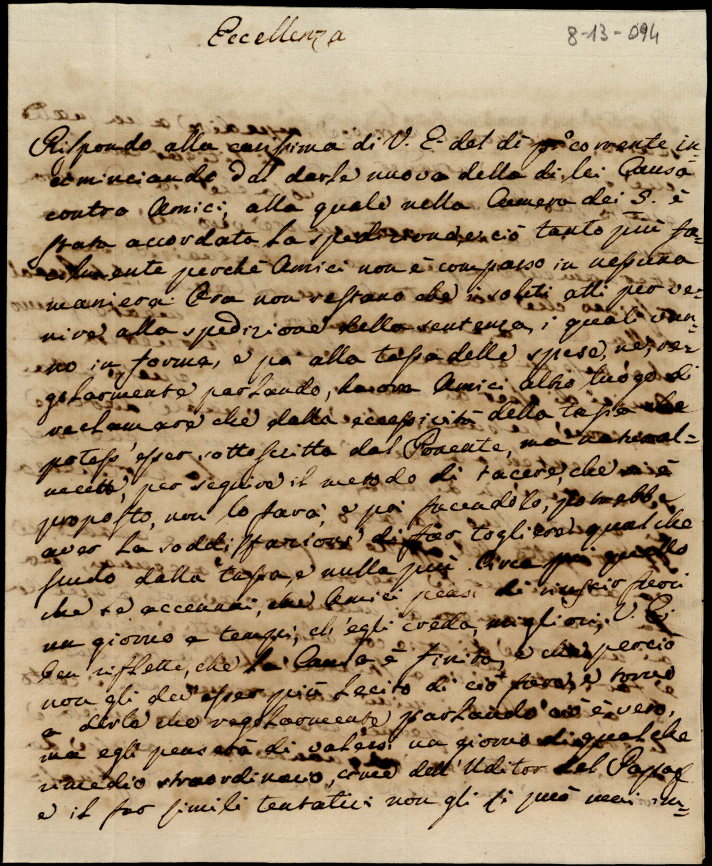 Eccellenza
8-13-094
Rispondo alla carissima di V. E. del dì pº corrente in-
cominciando dal darle nuova della di lei Causa
contro Amici, alla quale nella Camera dei S. è
stata accordata la spedizione, e ciò tanto più fa-
cilmente perchè Amici non è comparso in nessuna
maniera. Ora non restano che i soliti atti per ve-
nire alla spedizione della sentenza, i quali van-
no in forma, e poi alla tassa delle spese, ne, re-
golarmente parlando, ha ora Amici altro luogo di
reclamare che dalla eccessività della tassa che
potess' esser sottoscritta dal Ponente, ma natural-
mente, per seguire il metodo di tacere, che si è
proposto, non lo farà, e poi facendolo, potrebbe
aver la soddisfazione di far togliere qualche
scudo dalla tassa, e nulla più. Circa poi quello
che se accenna, che Amici pensi di riuscir fuori
un giorno a tempi, ch' egli creda, migliori, V. E.
ben riflette, che la Causa è finita, e che perciò
non gli dev' esser più lecito di ciò fare, e torno
a dirle che regolarmente parlando ciò è vero,
ma egli penserà di valersi un giorno di qualche
rimedio straordinario, come dell' Uditor del Papa,
e il far simili tentativi non gli si può mai im-